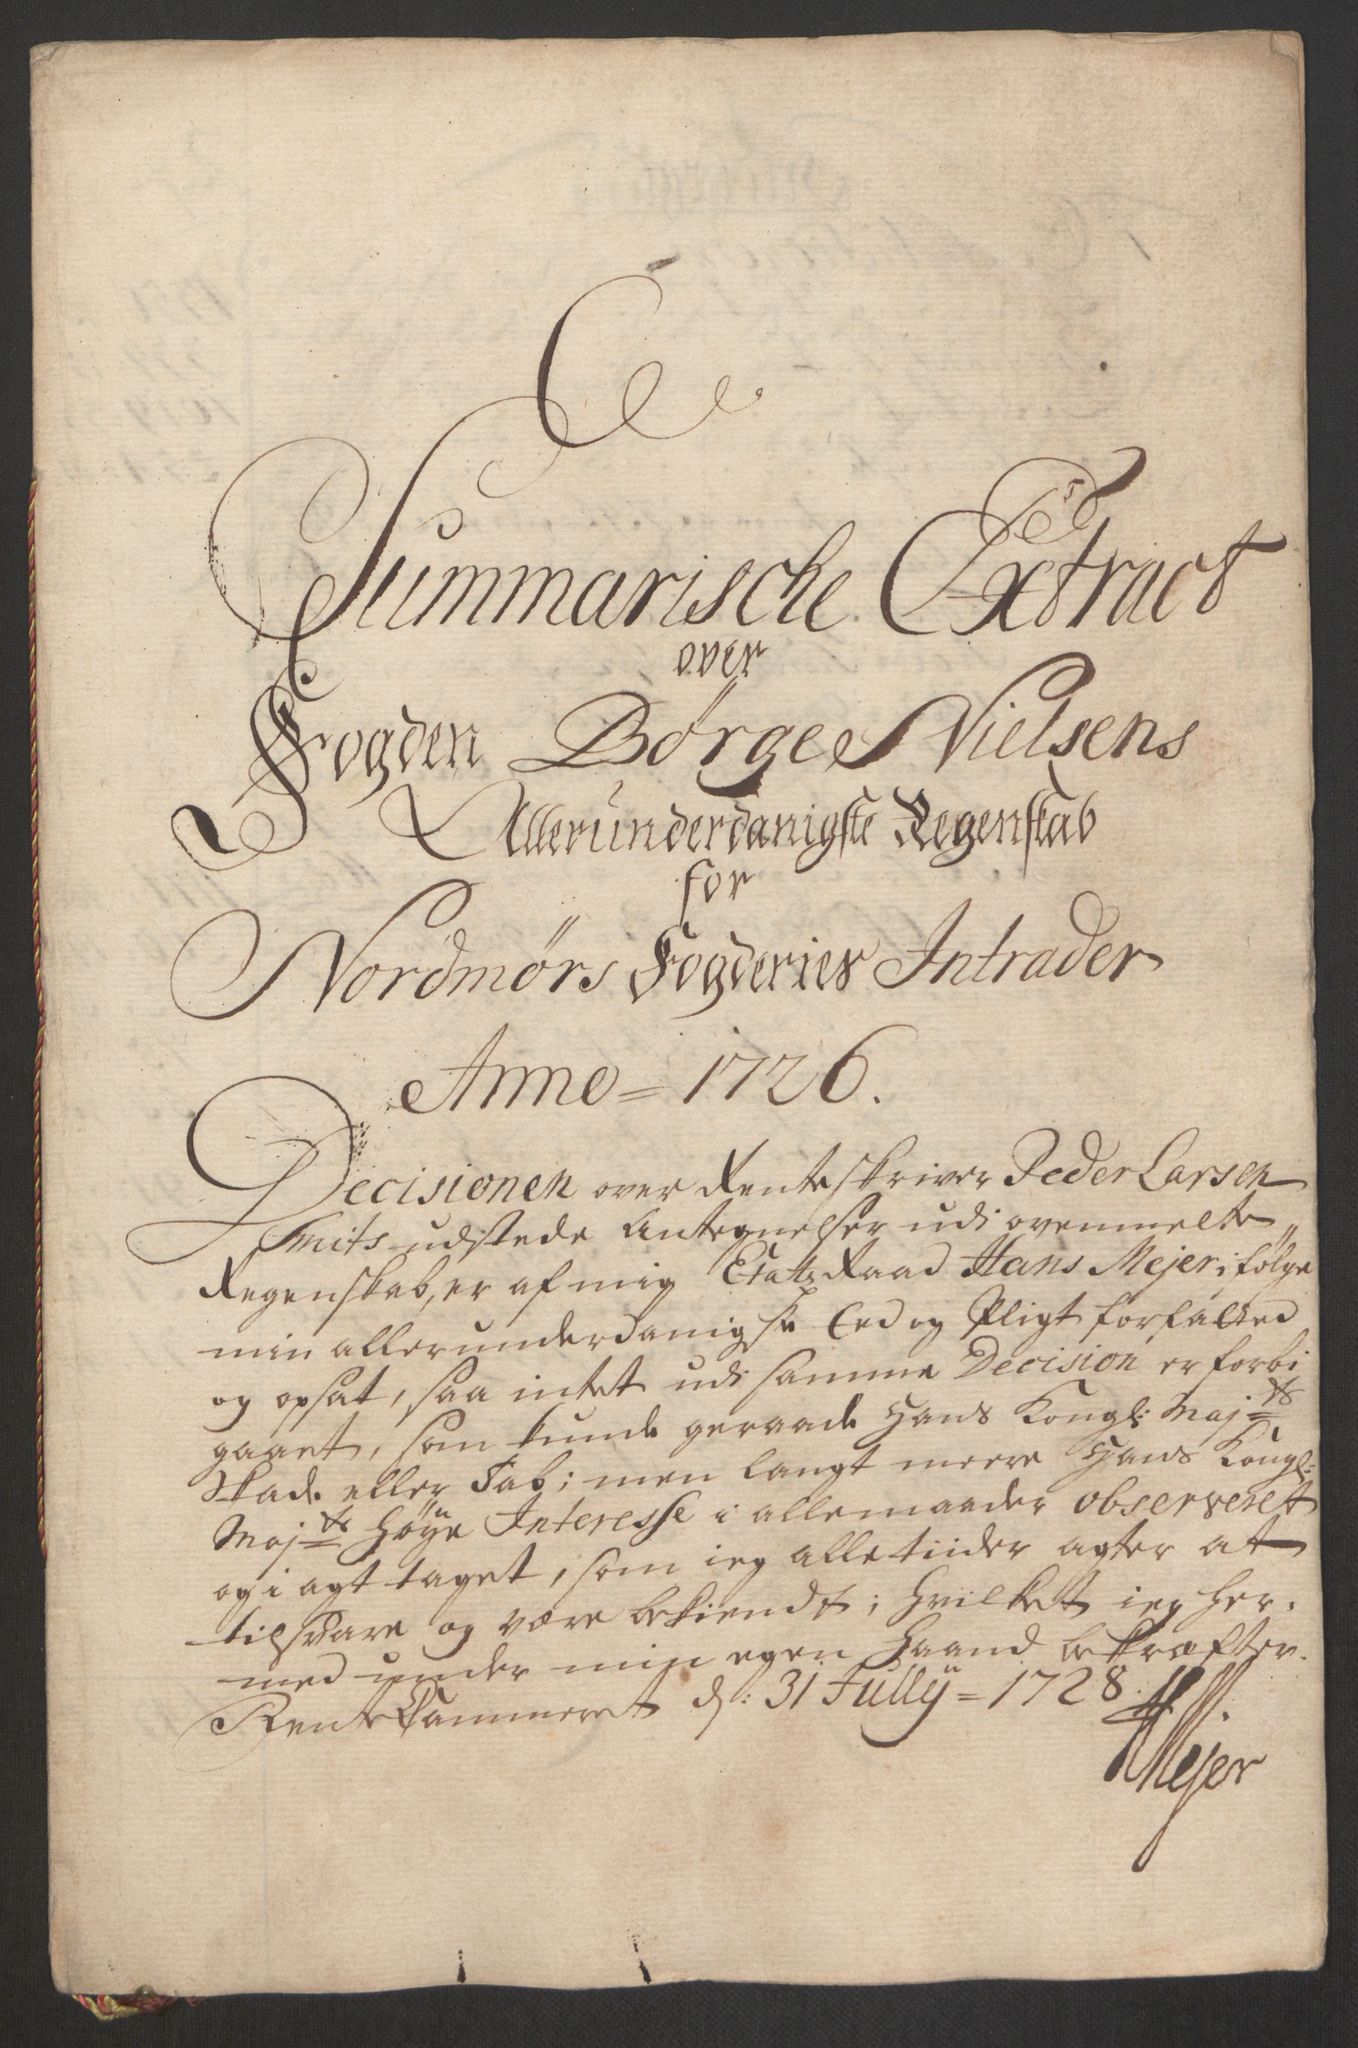 Summarische Extract
over
Fogden Børge Nielsens
Allerunderdanigste Regenskab
for
Nordmørs Fogderies Intrader
Anno = 1726.
Decisionen over Renteskriver Peder Larsen
Smits udstede Antegnelser udi ovenmelte
Regenskab, er af mig Etatz Raad Hans Mejer i følge
min allerunderdanigste Eed og Pligt forfatted
og opsat, saa intet udi samme Decision er forbi
gaaet, som kunde geraade Hans Kongl: Maj:ts
Skade eller Tab; men langt meere Hans Kongl:
Maj:ts Høye Interesse i allemaader observeret
og i agt taget, som ieg alletiider agter at
tilsvare og være bekiendt; hvilket ieg her-
med under min egen Haand bekræfter.
RenteKammeret d: 31 Jully = 1728.
HMejer